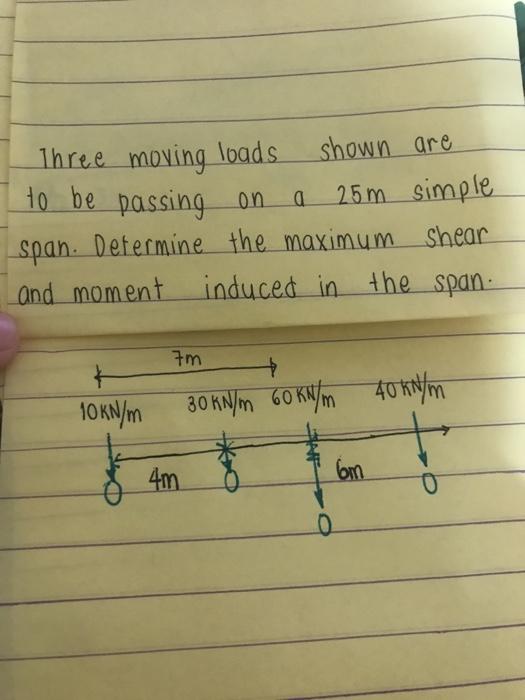 Three moving loads shown are
to be passing on a 25m simple
span. Determine the maximum shear
and moment induced in the span.
7m
10KN/m 30KN/m 60KN/m 40KN/m
4m 6m